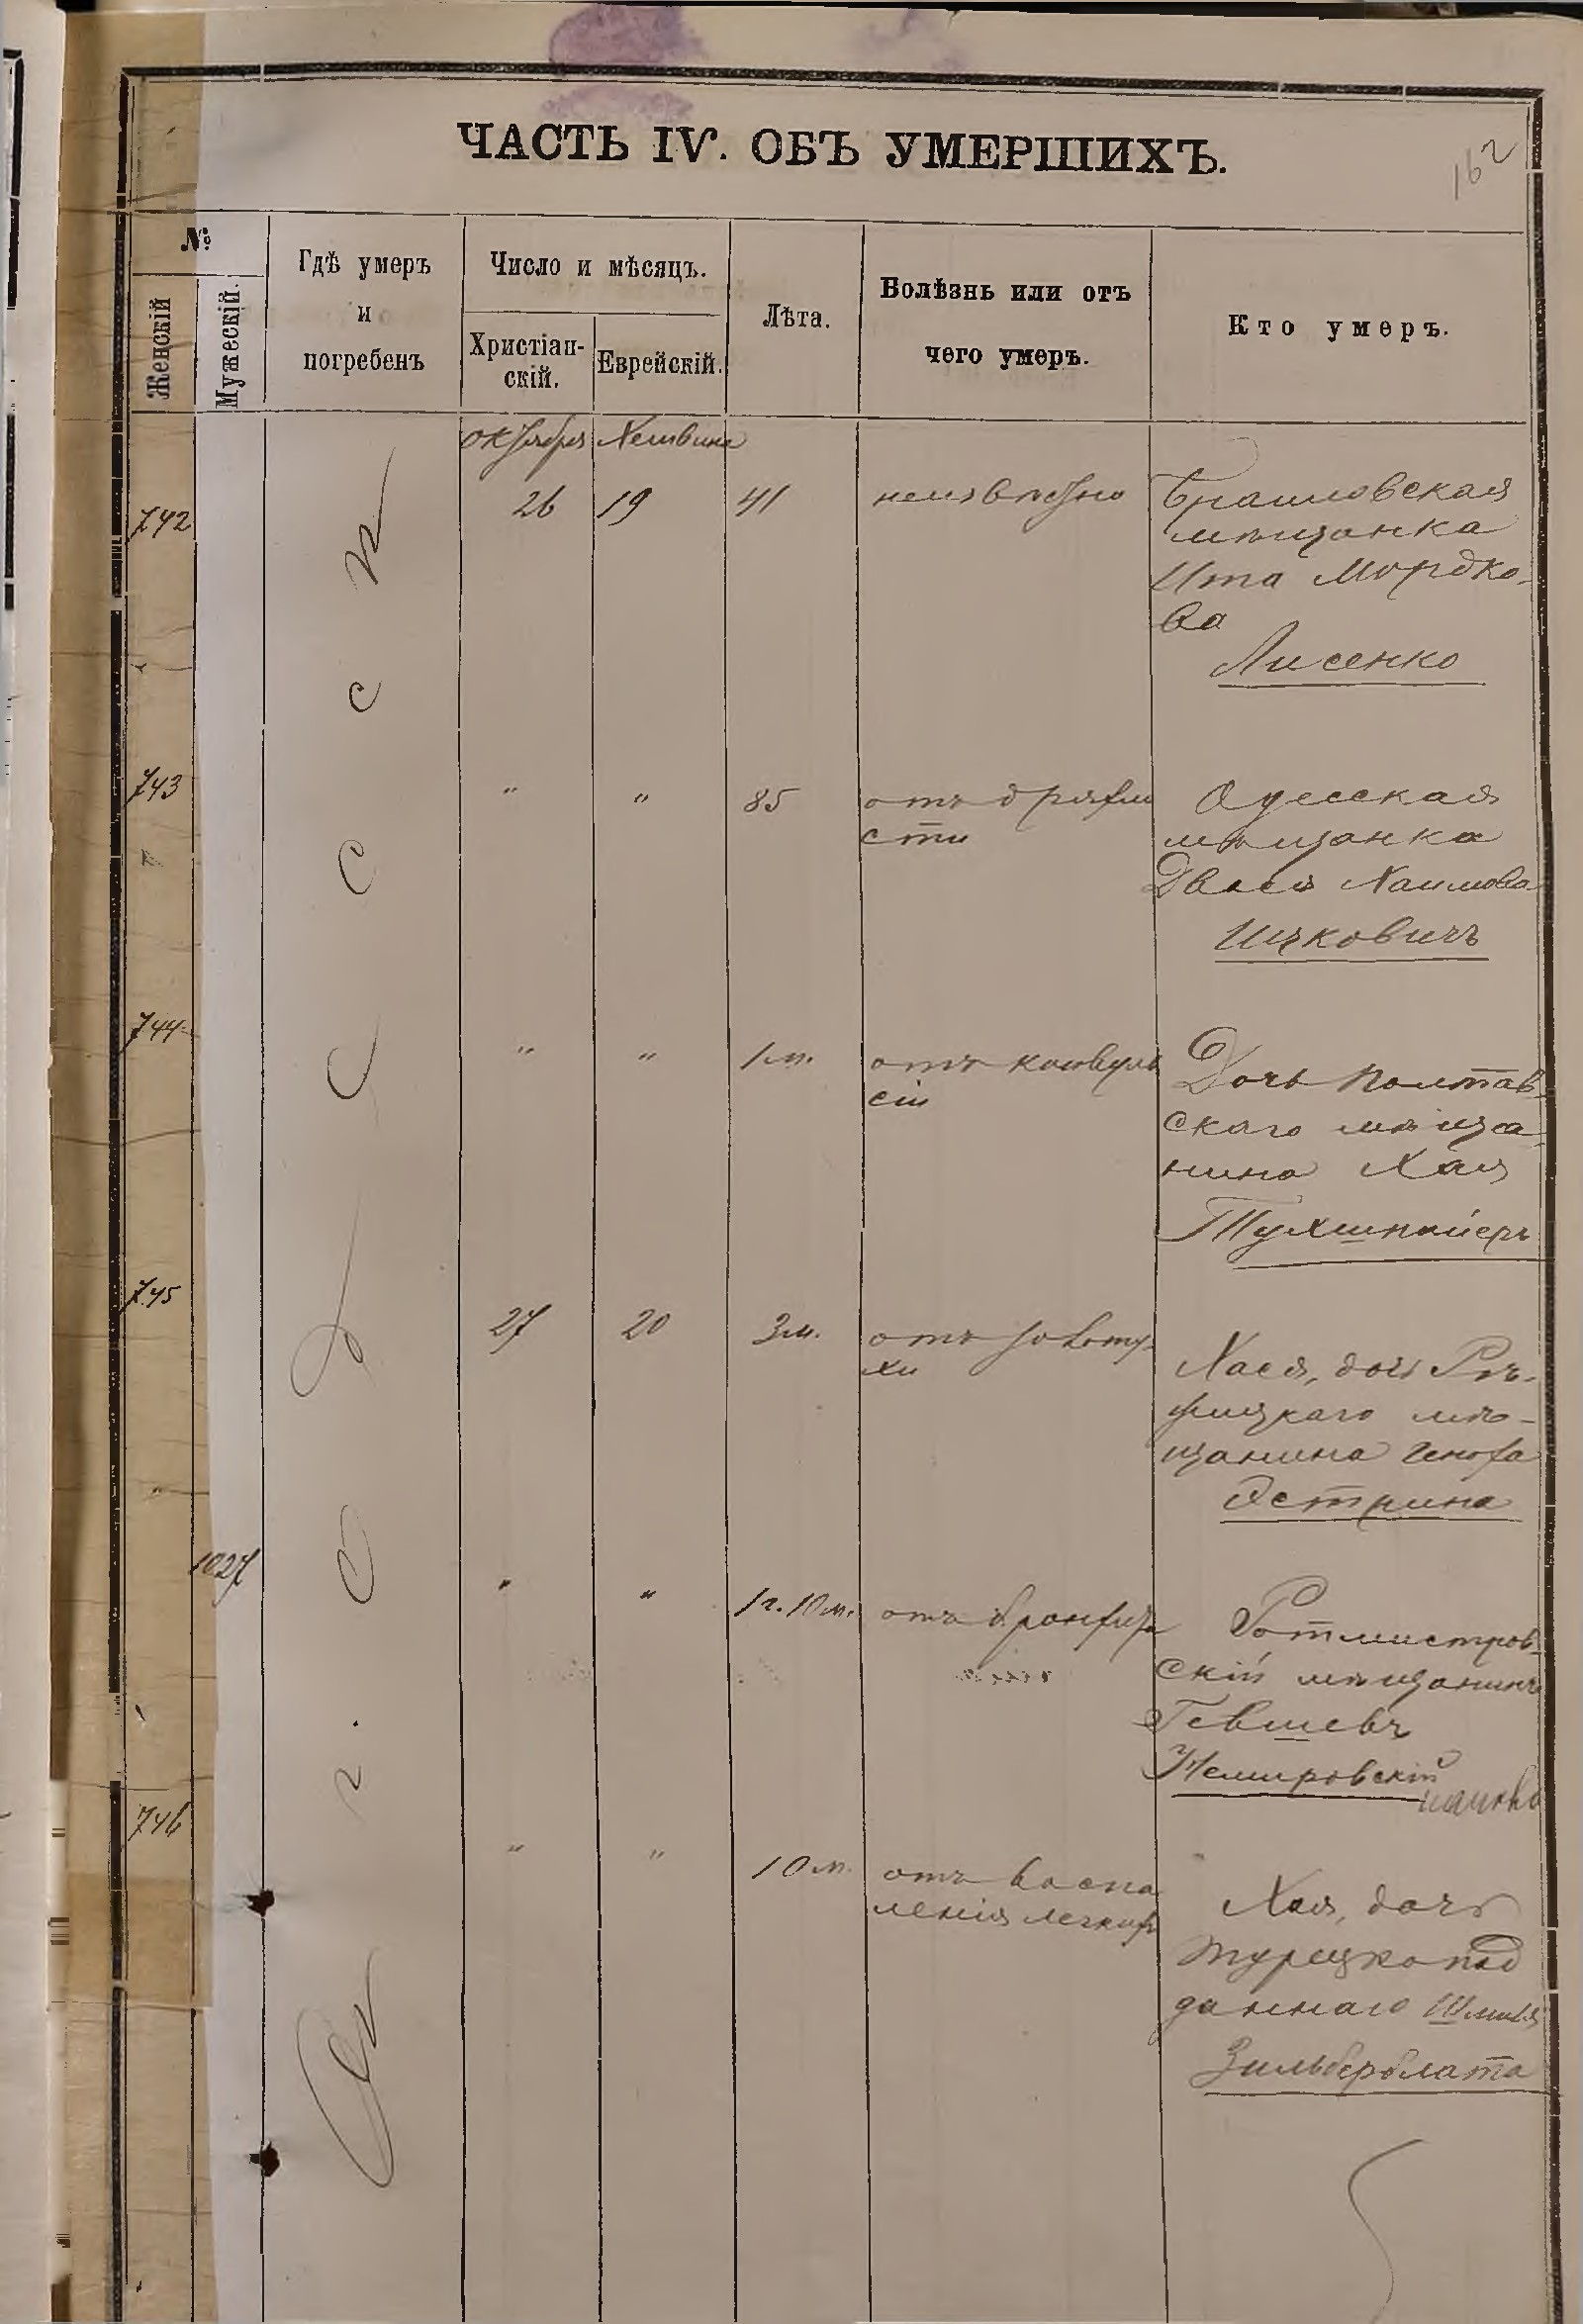 ЧАСТЬ IV. ОБЪ УМЕРШИХЪ.
162
№
Женскій
Мужескій.
Гдѣ умеръ
и
погребенъ
Число и мѣсяцъ.
Христіан-
скій.
Еврейскій.
Лѣта.
Болѣзнь или отъ
чего умеръ.
Кто умеръ.
октября Хешвина
742
26 19 41 неизвѣстно
Браиловская
мѣщанка
Ита Мордко-
ва
Лисенко
743
" " 85 отъ дряхло
сти
Одесская
мѣщанка
Двася Хаимова
Ицковичъ
744
" " 1 м. отъ конвуль
сіи
Дочь Полтав-
скаго мѣща-
нина Хая
Тухшнайеръ
745
27 20 3 м. отъ золоту-
хи
Хася, дочь Рѣ-
жицкаго мѣ-
щанина Геноха
Эстрина
1027
" " 1 г. 10 м. отъ бронхита
Ротмистров-
скій мѣщанинъ
Немировскій
746
" " 10 м. отъ воспа
ленія легкихъ
Хая, дочь
турецкопод
даннаго Шмиля
Зильберблата
Одесса